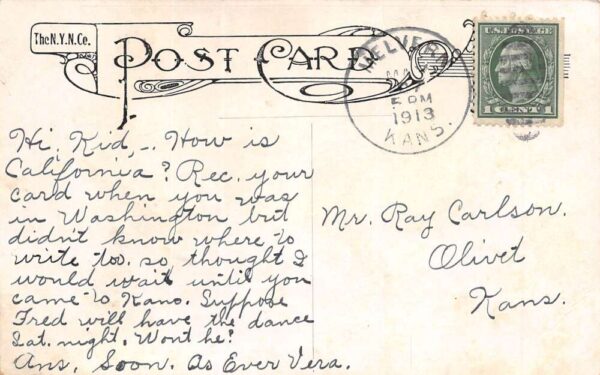 The N.Y.N. Co.
POST CARD
MELVERN
MA
5 PM
1913
KANS.
U.S. POSTAGE
1 CENT 1
Hi, Kid, - How is
California? Rec. your
card when you was
in Washington but
didn't know where to
write too. so thought I
would wait until you
came to Kans. Suppose
Fred will have the dance
Sat. night. Wont he?
Ans. Soon. As Ever Vera.
Mr. Ray Carlson.
Olivet
Kans.